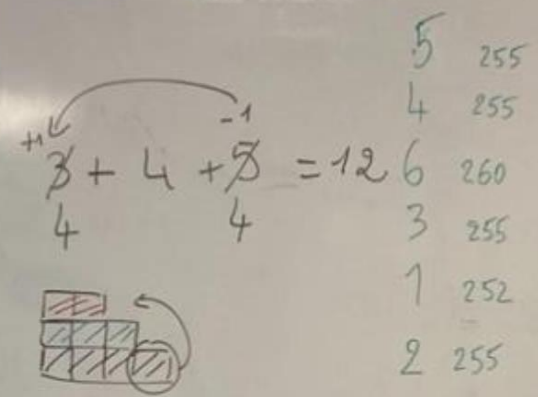 +1 -1
3 + 4 + 5 = 12
4 4
5 255
4 255
6 260
3 255
1 252
2 255